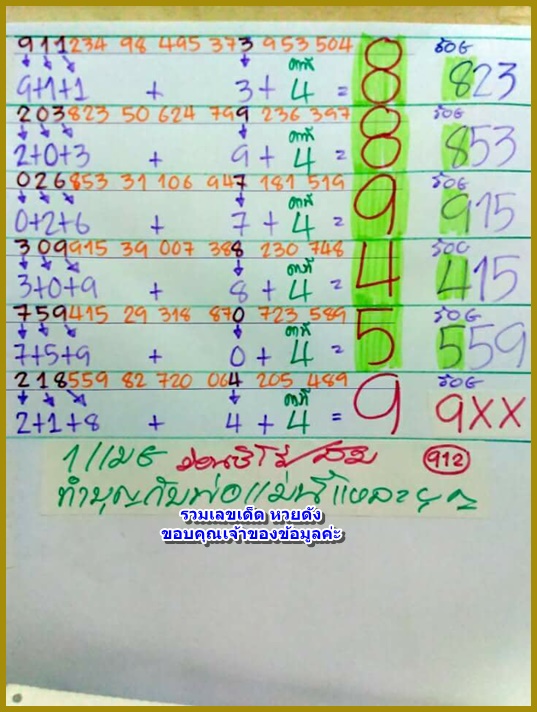 911234 98 495 373 953 504 8 ร้อย
9+1+1 + 3 + คงที่ 4 = 8 823
203823 50 624 799 236 397 8 ร้อย
2+0+3 + 9 + คงที่ 4 = 8 853
026853 31 106 947 181 519 ร้อย
0+2+6 + 7 + คงที่ 4 = 9 915
309915 39 007 388 230 748 ร้อย
3+0+9 + 8 + คงที่ 4 = 4 415
759415 29 318 870 723 589 ร้อย
7+5+9 + 0 + คงที่ 4 = 5 559
218559 82 720 064 205 489 ร้อย
2+1+8 + 4 + คงที่ 4 = 9 9XX
1 เมย 912
ทำบุญกับพ่อแม่นี่แหละ
รวมเลขเด็ด หวยดัง
ขอบคุณเจ้าของข้อมูลค่ะ